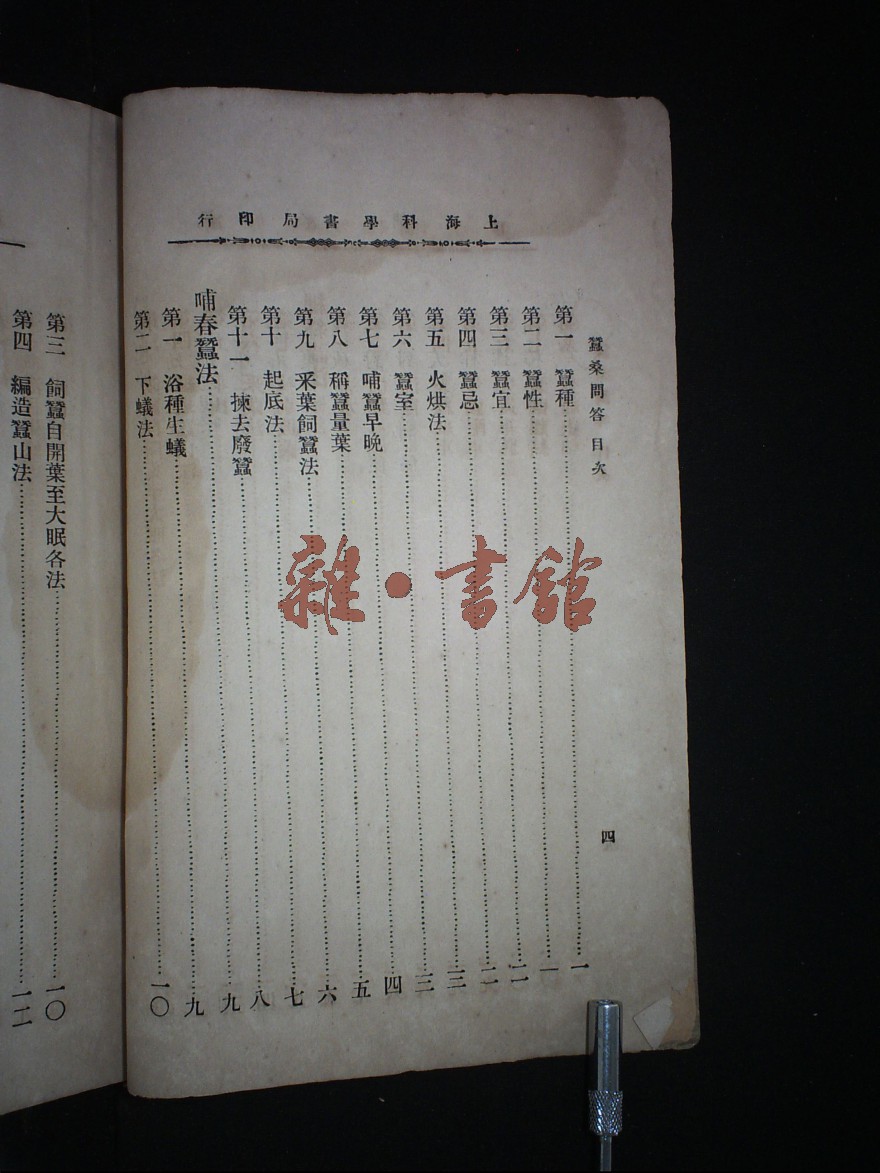 上海科學書局印行
蠶桑問答 目次
四
第一 蠶種……一
第二 蠶性……一
第三 蠶宜……二
第四 蠶忌……二
第五 火烘法……三
第六 蠶室……三
第七 哺蠶早晚……四
第八 稱蠶量葉……五
第九 采葉飼蠶法……六
第十 起底法……七
第十一 揀去廢蠶……八
哺春蠶法……九
第一 浴種生蟻……九
第二 下蟻法……一〇
第三 飼蠶自開葉至大眠各法……一〇
第四 編造蠶山法……一二
雜·書館